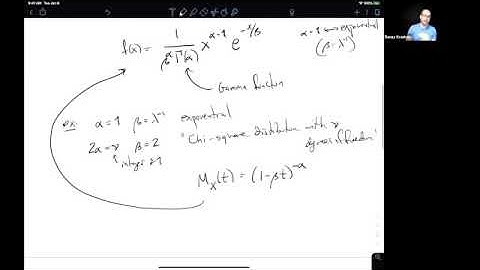 9:41 AM Tue Jan 6
f(x) = 1/(β^α Γ(α)) x^(α-1) e^(-x/β)
α=1 → exponential
(β=λ^-1)
Gamma function
ex. α=1 β=λ^-1 exponential
2α=ν β=2 "Chi-square distribution with ν degrees of freedom"
integer ≥1
M_X(t) = (1-βt)^-α